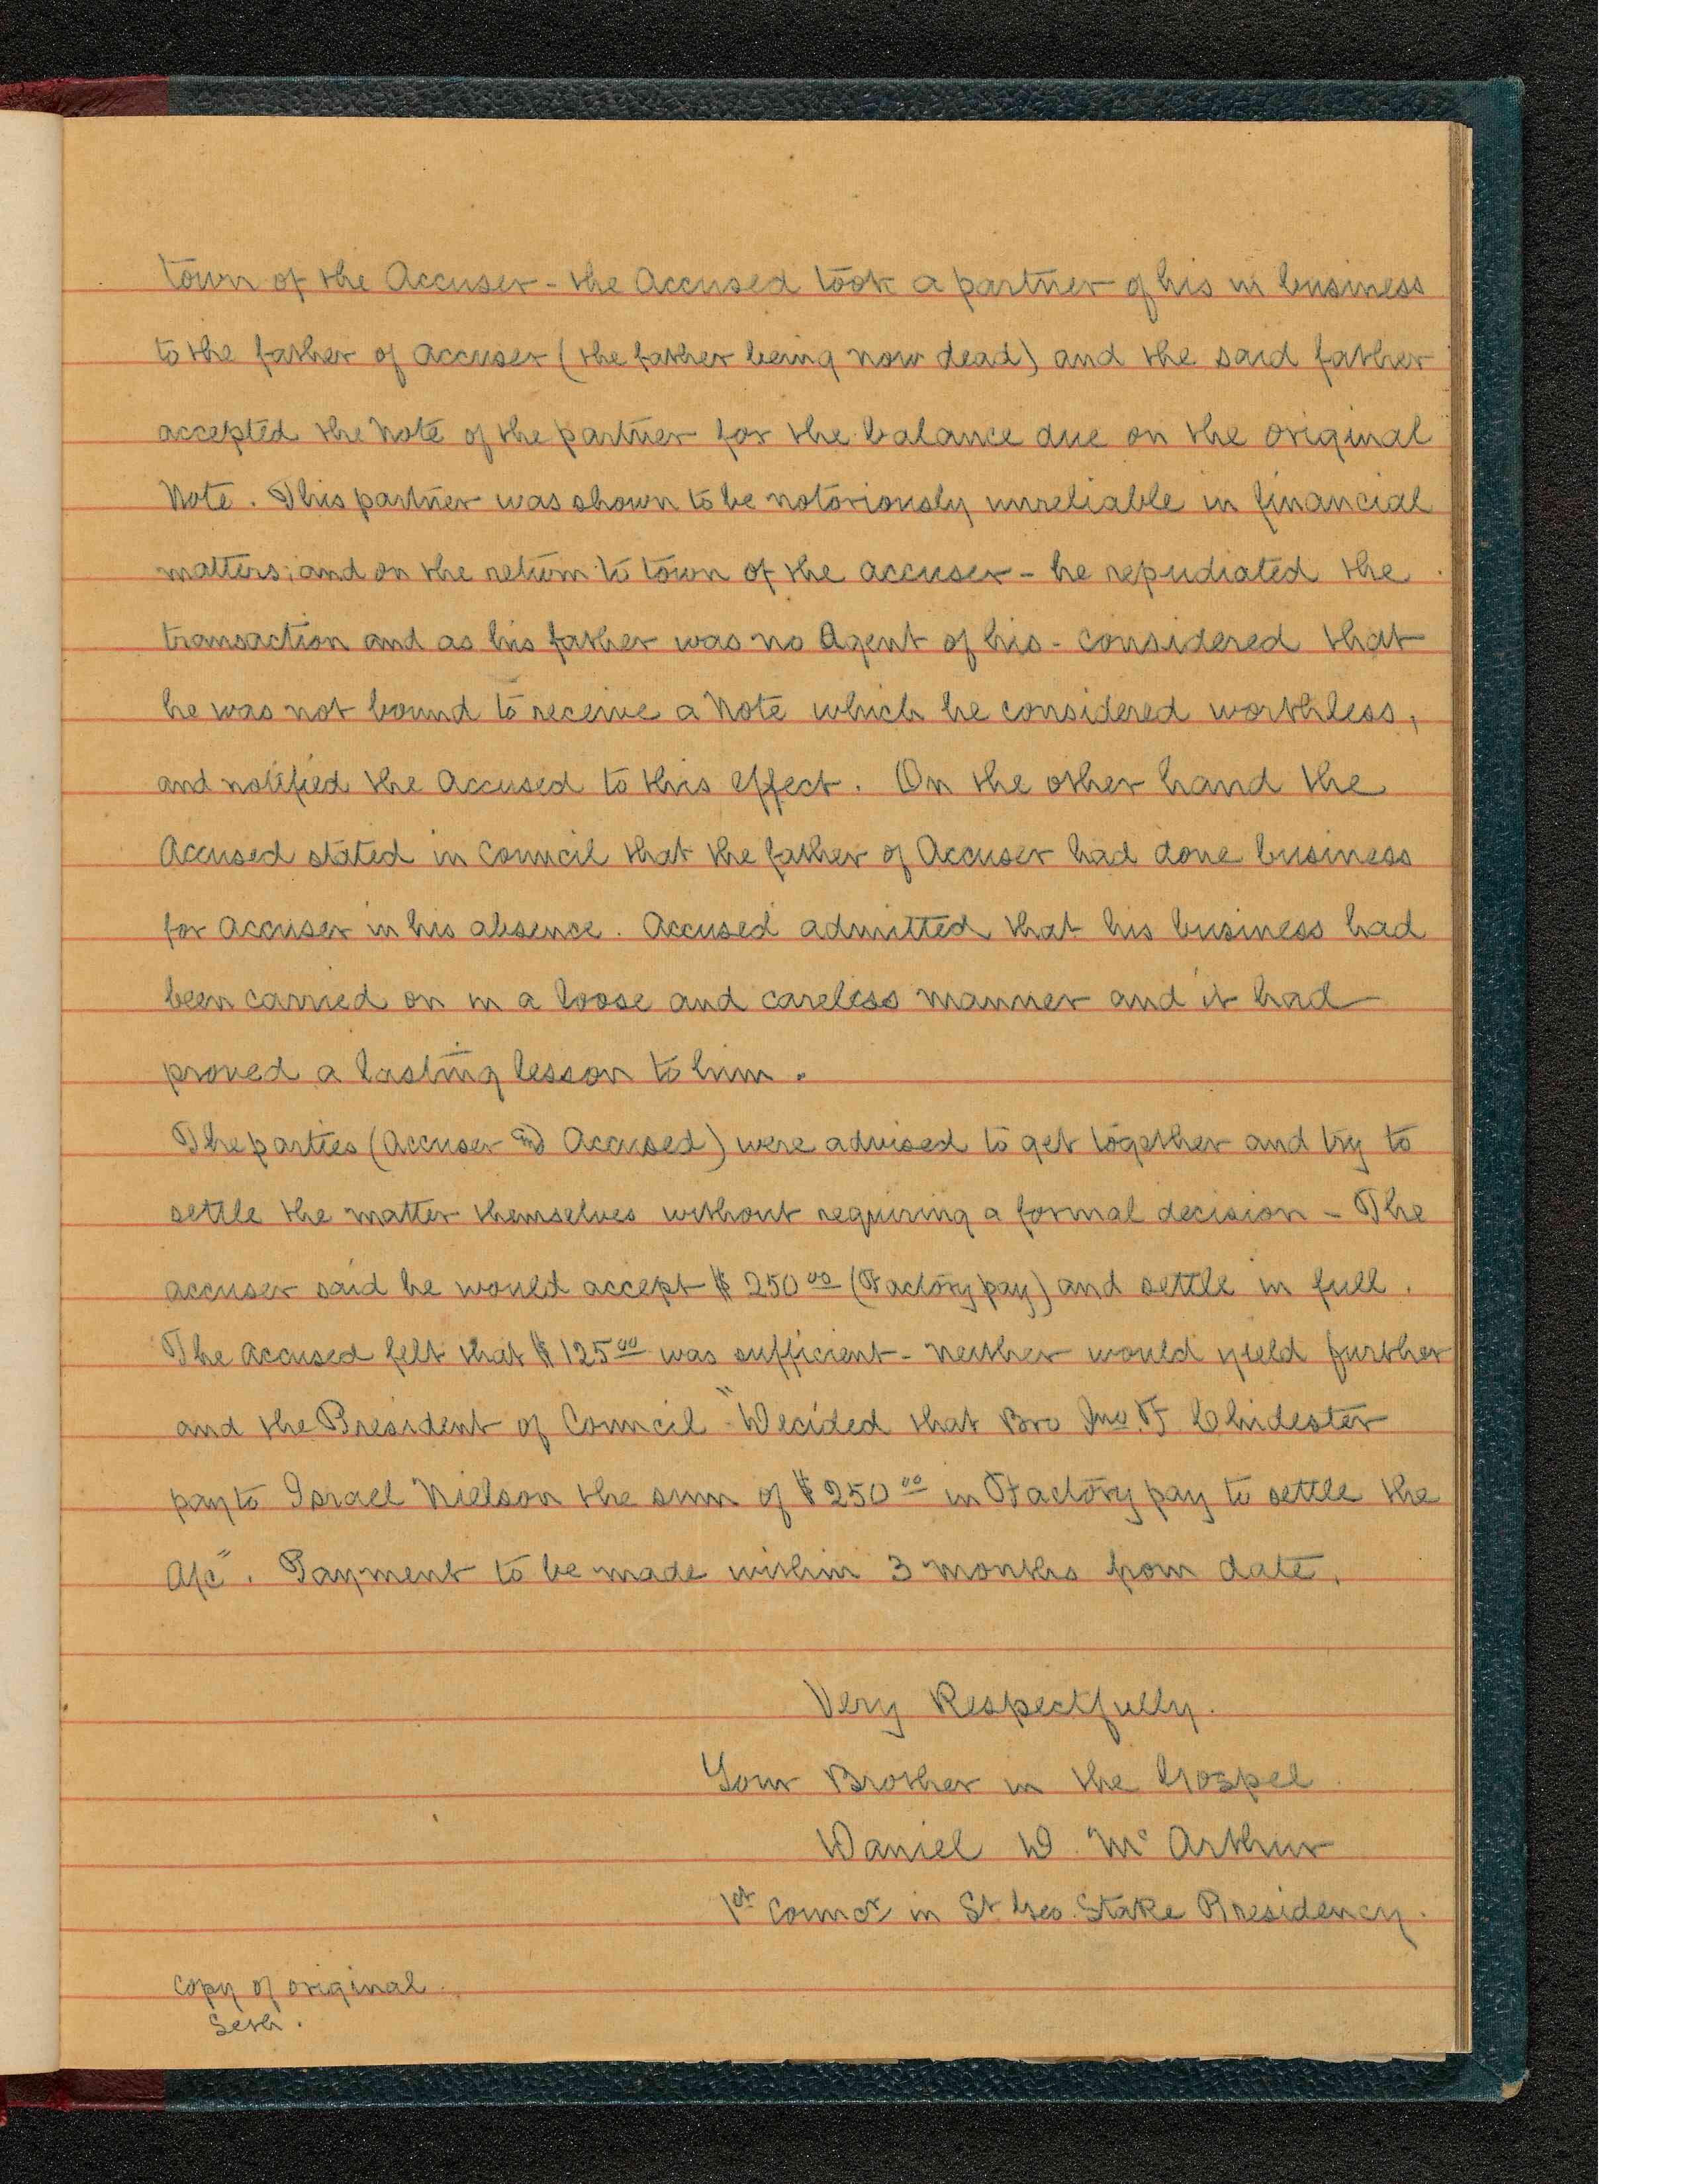 town of the Accuser - the Accused took a partner of his in business
to the father of accuser (the father being now dead) and the said father
accepted the Note of the partner for the balance due on the original
Note. This partner was shown to be notoriously unreliable in financial
matters; and on the return to town of the accuser - he repudiated the
transaction and as his father was no Agent of his - considered that
he was not bound to receive a Note which he considered worthless,
and notified the Accused to this effect. On the other hand the
Accused stated in Council that the father of Accuser had done business
for accuser in his absence. Accused admitted that his business had
been carried on in a loose and careless manner and it had
proved a lasting lesson to him.
The parties (Accuser and Accused) were advised to get together and try to
settle the matter themselves without requiring a formal decision - The
accuser said he would accept $250 00 (Factory pay) and settle in full.
The Accused felt that $125 00 was sufficient - neither would yield further
and the President of Council "Decided that Bro Jno. F. Chidester
pay to Israel Nielson the sum of $250 00 in Factory pay to settle the
A/c". Payment to be made within 3 months from date.
Very Respectfully.
Your Brother in the Gospel
Daniel D. Mc Arthur
1st Counor in St Geo. Stake Presidency.
Copy of original.